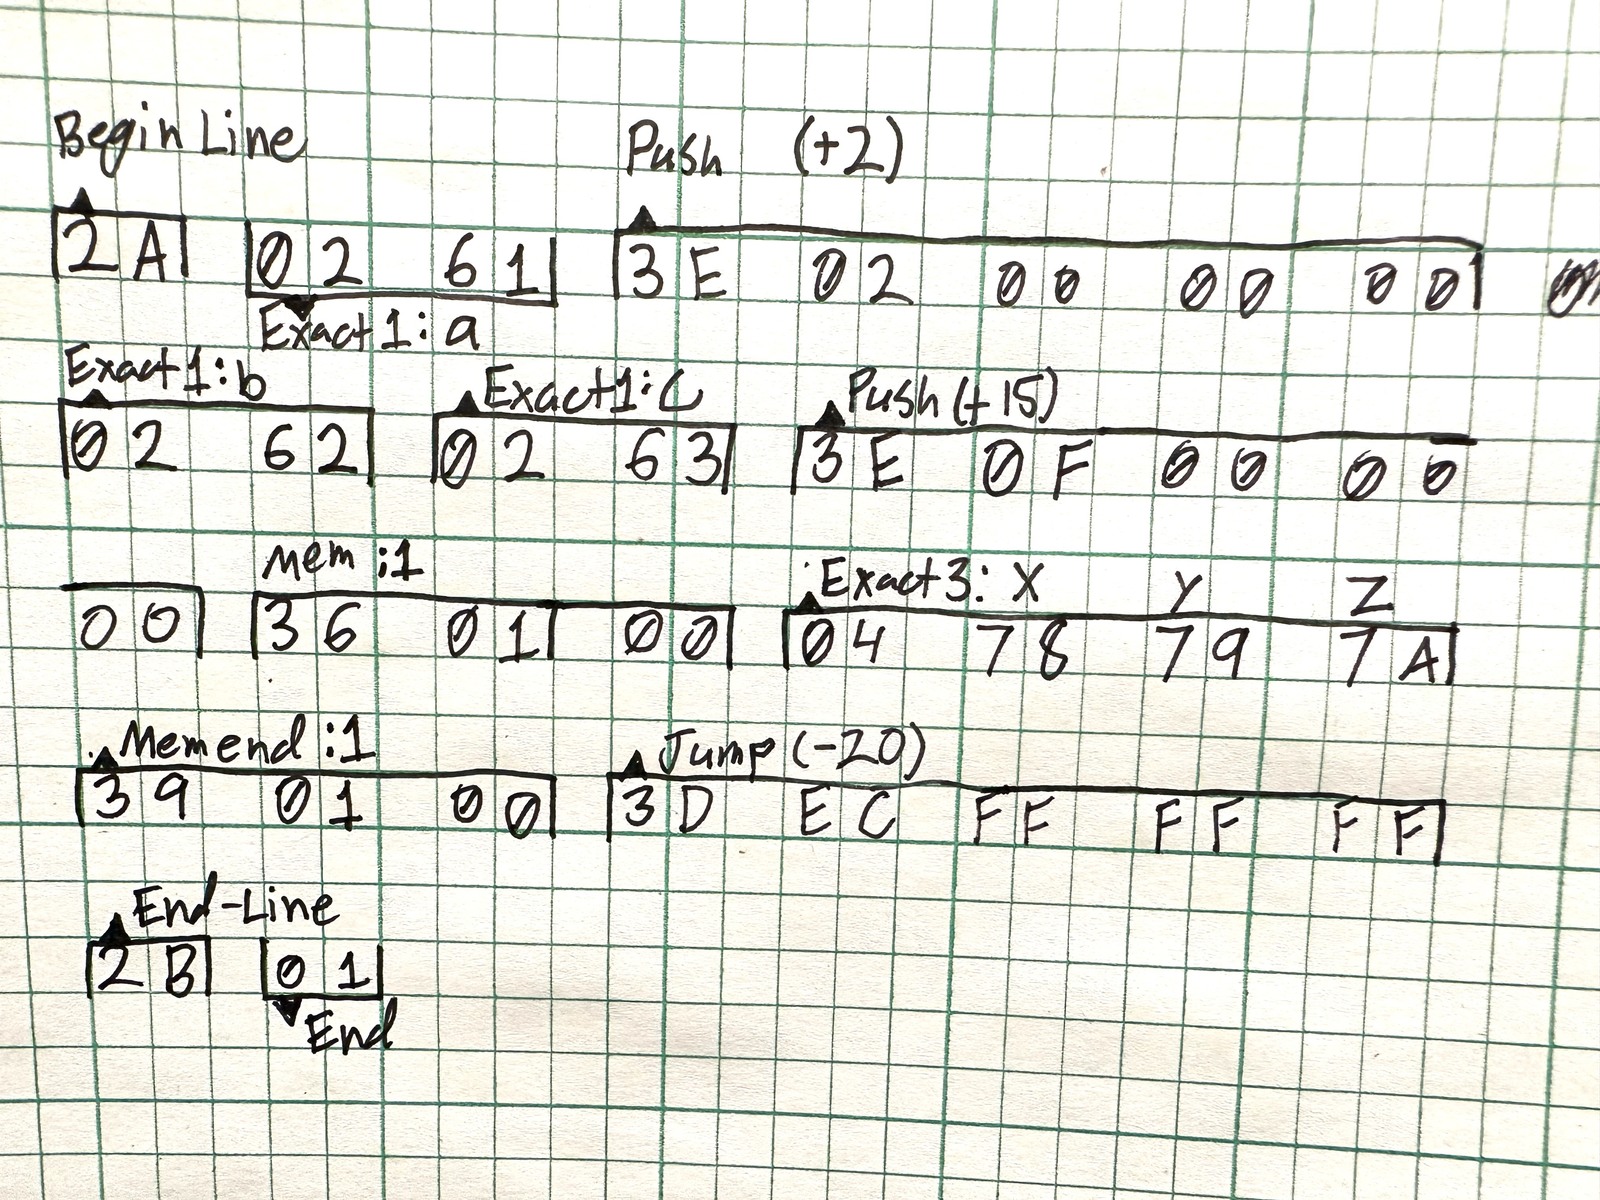 Begin Line Push (+2)
2A 02 61 3E 02 00 00 00
Exact1:a
Exact1:b Exact1:C Push(+15)
02 62 02 63 3E 0F 00 00
Mem :1 Exact3: X Y Z
00 36 01 00 04 78 79 7A
Memend :1 Jump (-20)
39 01 00 3D EC FF FF FF
End-Line
2B 01
End